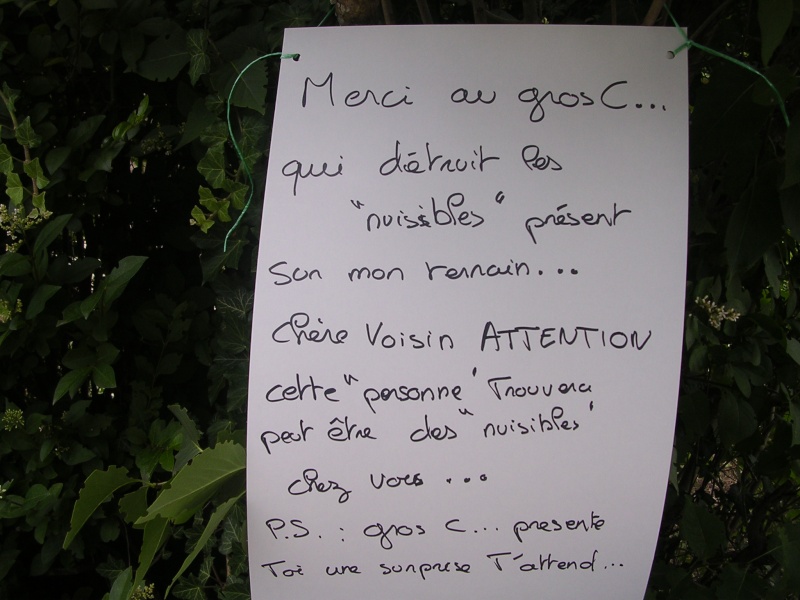 Merci au gros C...
qui détruit les
"nuisibles" présent
Sur mon terrain...
Chère Voisin ATTENTION
cette "personne" Trouvera
peut être des "nuisibles"
chez vous ...
P.S. : gros C... presente
Toi une surprise T'attend...